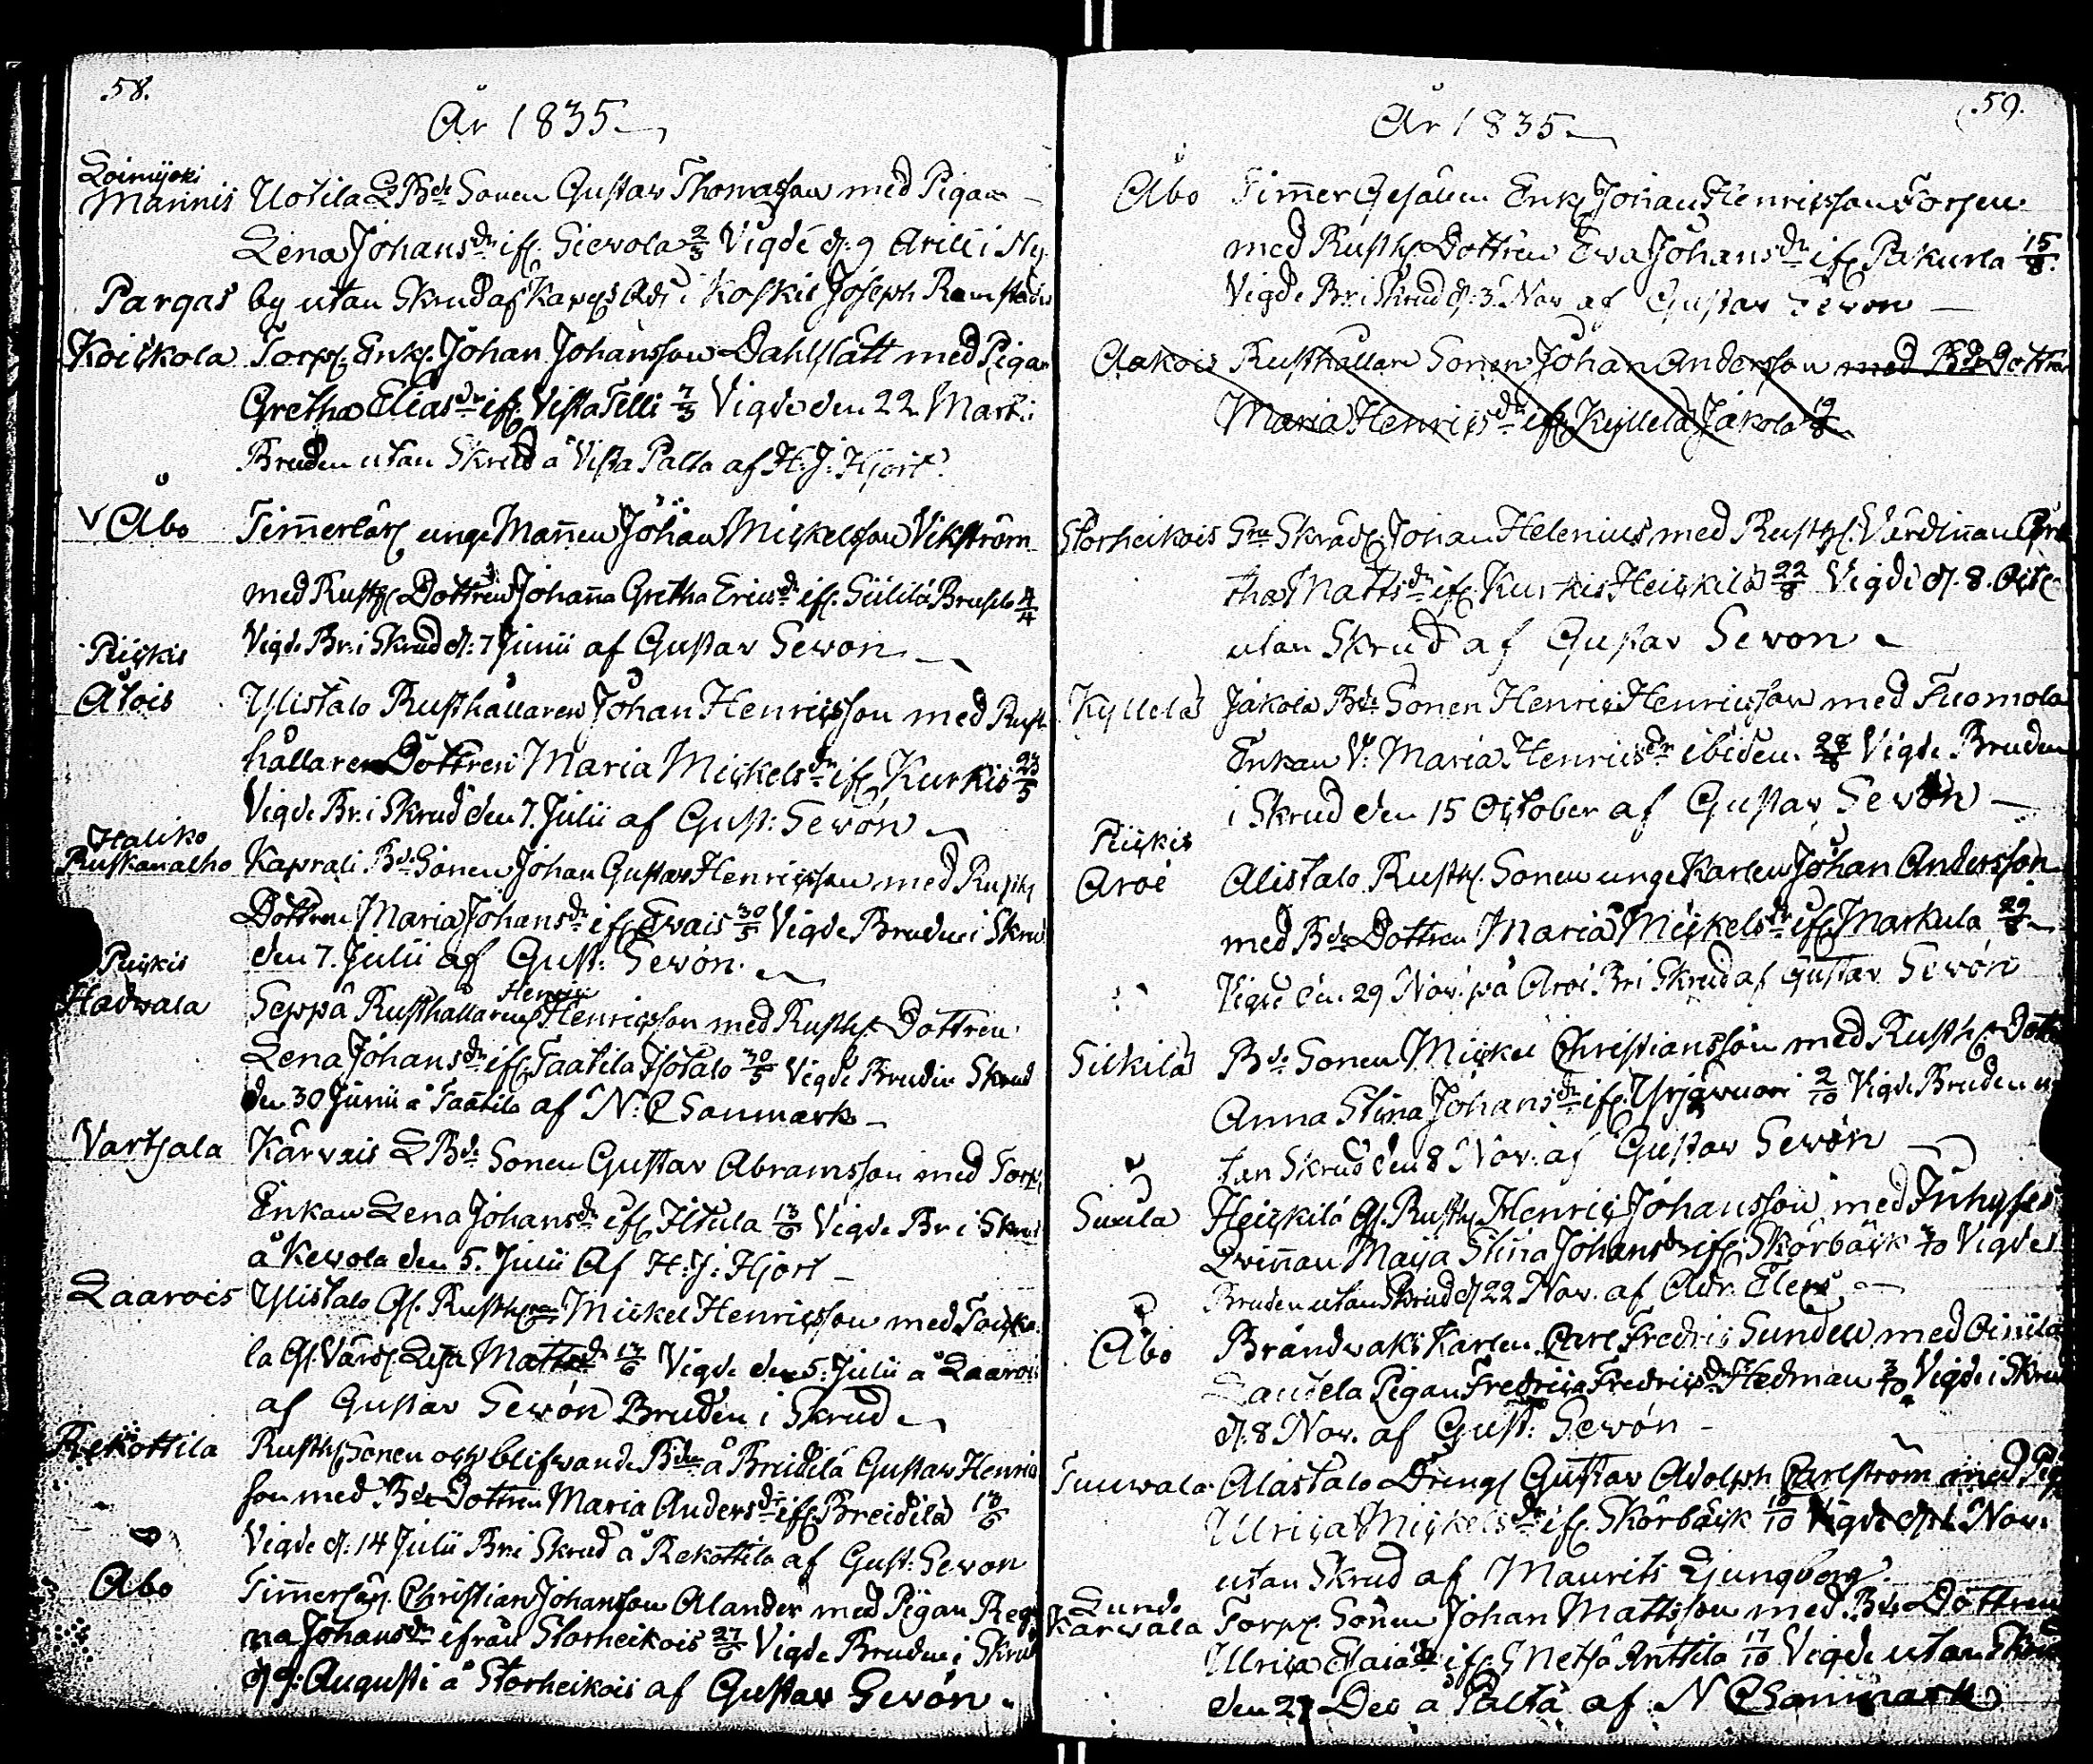 58.
År 1835
Loimijoki
Mannis Uotila L Bde Sonen Gustav Thomasson med Pigan
Lena Johansdr ifr. Sievola 2/3 Vigde d. 9 i Ny
Pargas by utan Skrud af i Koskis Joseph
Koickola Torp. Enkl. Johan Johansson Dahlslätt med Pigan
Gretha Eliasdr ifr. Vista Telli 7/3 Vigde den 22 Marti
Bruden utan Skrud å Vista Palta af H: J: Hjort
Åbo Timmerlärl unge Mannen Johan Mickelsson Vikström
med Rusth. Dottren Johanna Gretha Ericsdr ifr. Siililä 4/4
Vigde Br. i Skrud d. 7 Junii af Gustav Sevon
Piickis
Atois Ylistalo Rusthållaren Johan Henricsson med Rust
hållaren Dottren Maria Mickelsdr ifr. Kurkis 23/5
Vigde Br. i Skrud den 7. Julii af Gust: Sevón
Haliko
Ruskanalho Kaprali Bde Sonen Johan Gustav Henricsson med Rusth
Dottren Maria Johansdr ifr. Evais 30/5 Vigde Bruden i Skrud
den 7. Julii af Gust: Sevón.
Piickis Henric
Hadvala Seppä Rusthållaren Henricsson med Rusth. Dottren
Lena Johansdr ifr. Taatila Isotalo 30/5 Vigde Bruden Skrud
den 30 Junii å Taatila af N: C Sanmark
Vartsala Kärvais L Bde Sonen Gustav Abramsson med Torp.
Enkan Lena Johansdr ifr. Iltula 13/6 Vigde Br i Skrud
å Kevola den 5. Julii Af H: J: Hjort
Laarois Ylistalo Gl. Rusth Mickel Henricsson med
la Gl. Lisa Mattsdr Vigde den 5. Julii å Laarois
af Gustav Sevón Bruden i Skrud
Rekottila Rusth. Sonen och blifvande Bden å Breidilä Gustav Henrics
son med Bde Dottren Maria Andersdr ifr. Breidilä 18/6
Vigde d: 14 Julii Br i Skrud å Rekottila af Gust: Sevon
Åbo Timmer Christian Johansson Alander med Pigan Regi
na Johansdr ifrån Storheikois 27/6 Vigde Bruden i Skrud
d 9: Augusti å Storheikois af Gustav Sevón.
59.
År 1835
Åbo Timmer Gesällen Enkl Johan Henricsson Forsen
med Rusth. Dottren Eva Johansdr ifr Pakurla 15/8
Vigde Br. i Skrud d. 3 Nov af Gustav Sevon
Aakois Rusthållare Sonen Johan Andersson med Bde Dottren
Maria Henricsdr ifr Kyllelä Jakola 19/8
Storheikois Sn Skrädd. Johan Helenius med Rusth. Värdinnan Gre
tha Mattsdr ifr Kurkis Heickilä 22/8 Vigde d. 8. Oct
utan Skrud af Gustav Sevon
Kyllelä Jakola Bde Sonen Henric Henricsson med Tuomola
Enkan V. Maria Henricsdr ibidem Vigde Bruden
i Skrud den 15 October af Gustav Sevon
Piickis
Aroi Alistalo Rusth. Sonen unge Karlen Johan Andersson
med Bde Dottren Maria Mickelsdr ifr Markula 29/8
Vigde den 29 Nov. på Aroi Br i Skrud af Gustav Sevón
Silkilä Bde Sonen Mickel Christiansson med Rusth. Dott
Anna Stina Johansdr ifr. Yrjävuori 2/10 Vigde Bruden u
tan Skrud den 8 Nov. af Gustav Sevón
Suxela Heickilä Gl. Rusth. Henric Johansson med Inhyses
Qvinnan Maija Stina Johansdr ifr. Skörbäck Vigde
Bruden utan Skrud d 22 Nov. af Adr. Elers
Åbo Brandvakts Karlen Carl Fredric Sundell med
Pigan Fredrica Fredricsdr Hedman 3/10 Vigde i Skrud
d. 8 Nov. af Gust: Sevón
Tuuvala Alastalo Dreng Gustav Adolph Carlström med Pig
Ulrica Mickelsdr ifr. Skörbäck 10/10 Vigde d. 1 Nov.
utan Skrud af Maurits Ljungberg
Lundo
Kärvala Torp. Sonen Johan Mattsson med Bde Dottren
Ulrica Esaiædr ifr. Metsä Anttila 17/10 Vigde utan Skrud
den 27 Dec å Palta af N C Sanmark